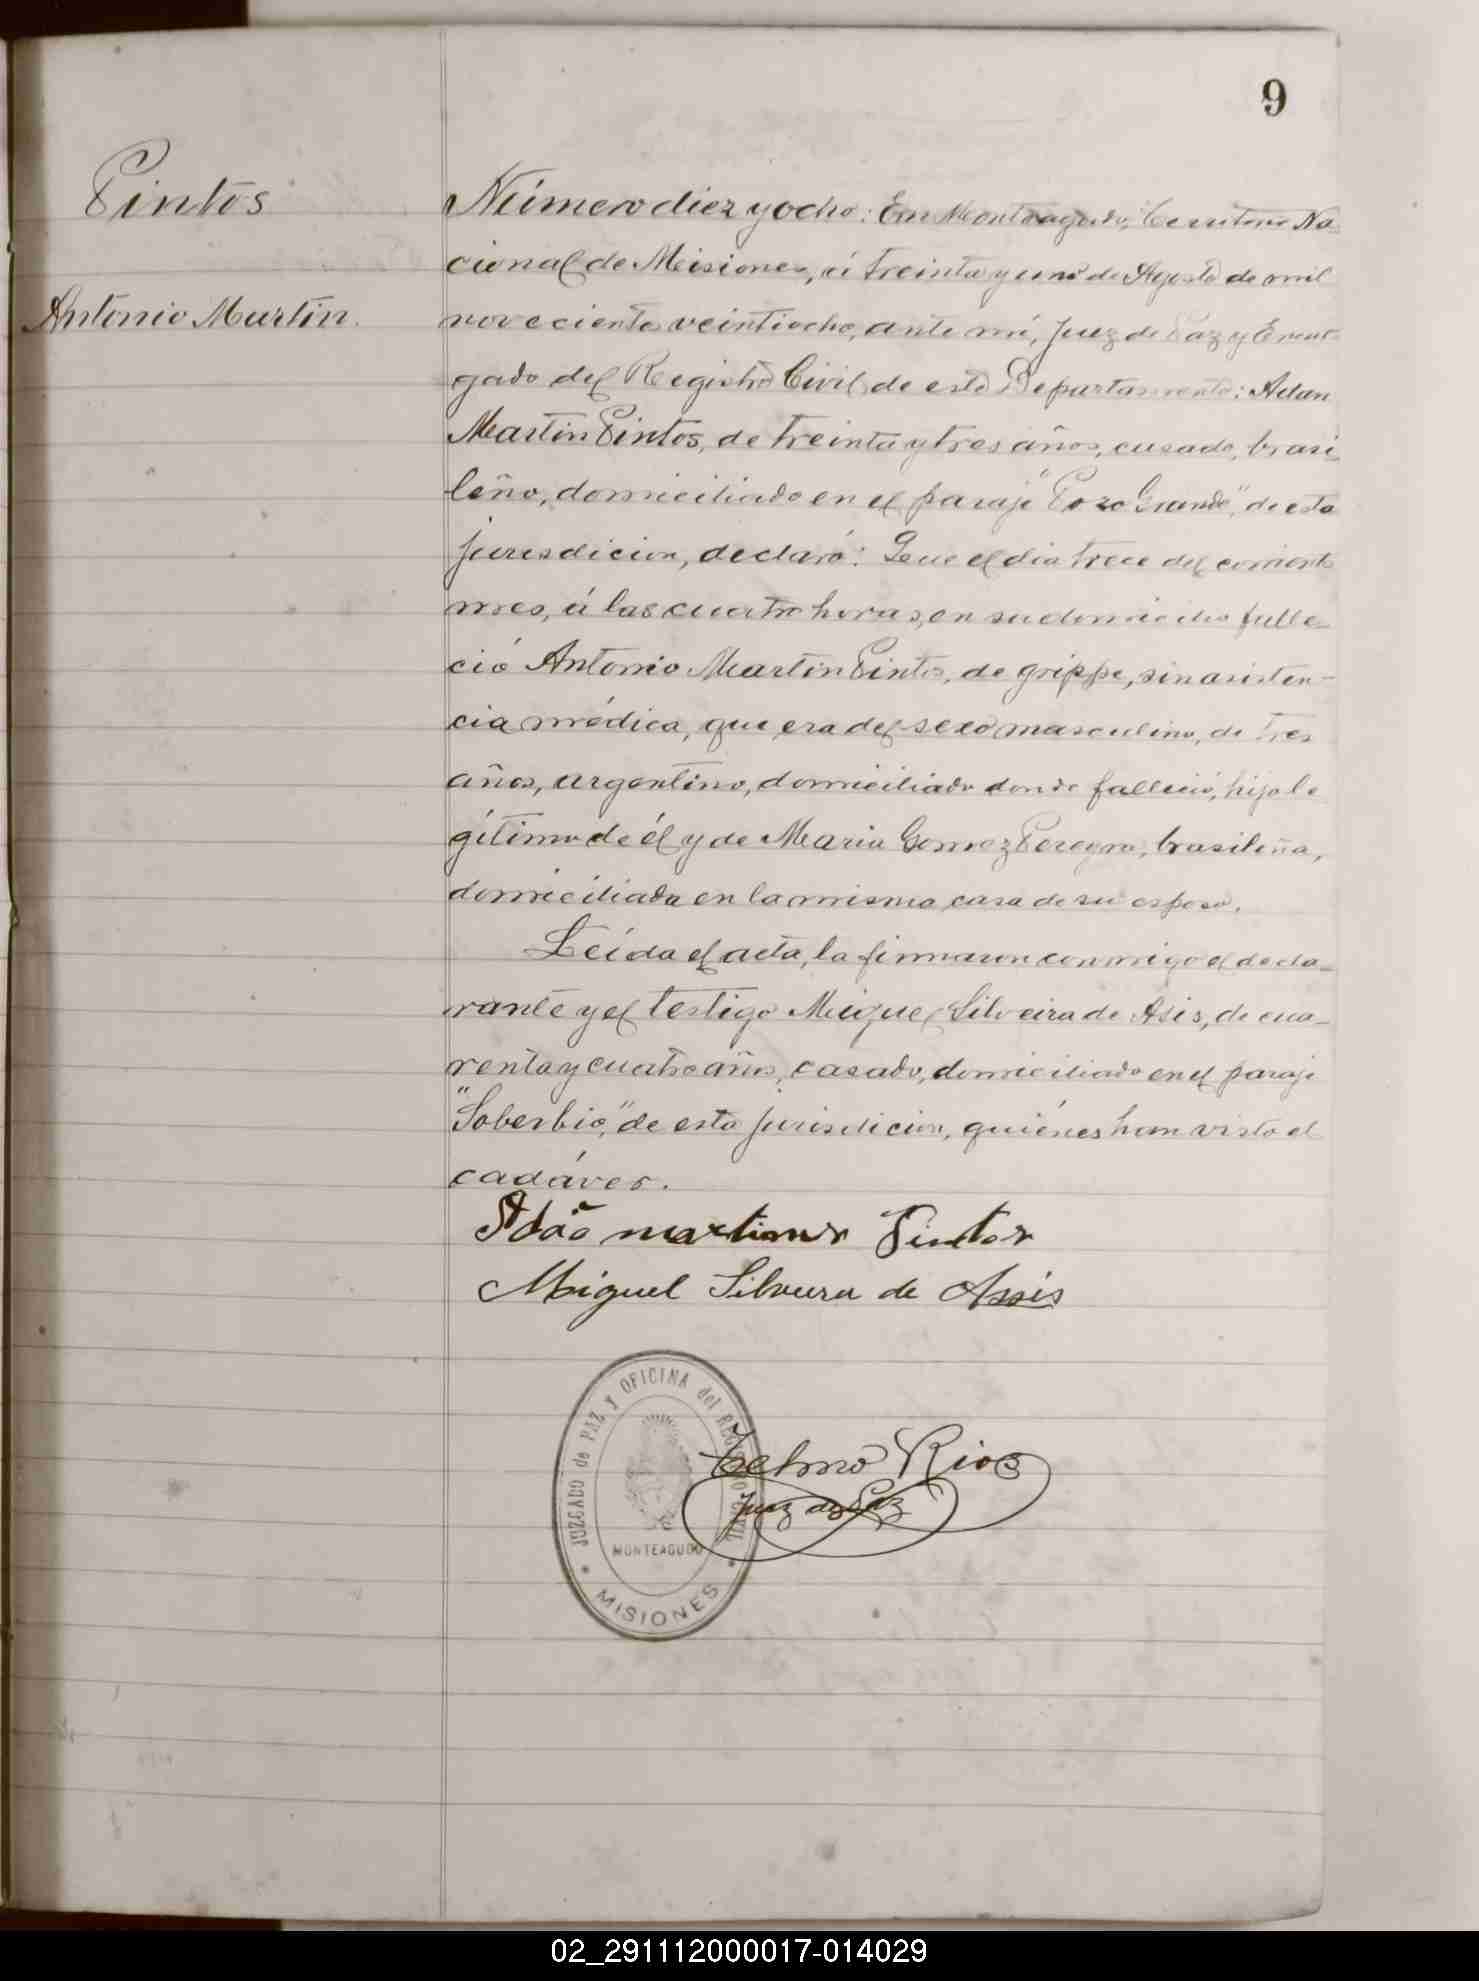 9
Pintos
Antonio Martin.
Número diez y ocho: En Monteagudo, Territorio Na-
cional de Misiones, á treinta y uno de Agosto de mil
novecientos veintiocho, ante mí, Juez de Paz y Encar-
gado del Registro Civil de este Departamento: Adan
Martin Pintos, de treinta y tres años, casado, brasi-
leño, domiciliado en el paraje "Pozo Grande", de esta
jurisdicion, declaró: Que el dia trece del corriente
mes, á las cuatro horas, en su domicilio falle-
ció Antonio Martin Pintos, de grippe, sin asisten-
cia médica, que era del sexo masculino, de tres
años, argentino, domiciliado donde falleció, hijo le
gítimo de él y de Maria Gomez Pereyra, brasileña,
domiciliada en la misma casa de su esposo.
Leída el acta, la firmaron conmigo el decla-
rante y el testigo Miguel Silveira de Asis, de cua-
renta y cuatro años, casado, domiciliado en el paraje
"Soberbio," de esta jurisdicion, quiénes han visto el
cadáver.
Adão martines Pintos
Miguel Silveira de Assis
JUZGADO de PAZ y OFICINA del REGISTRO CIVIL
MONTEAGUDO
MISIONES
Telmo Rios
Juez de Paz
02_291112000017-014029